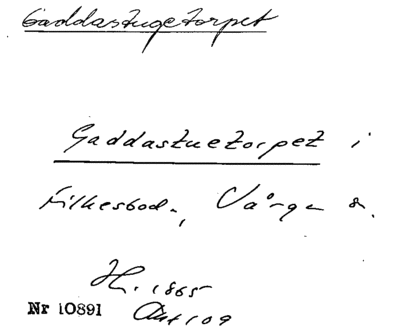 Gaddastugetorpet
Gaddastuetorpet i
Filkesbod., Vånga s.
H. 1865
Nr 10891
Akt 109